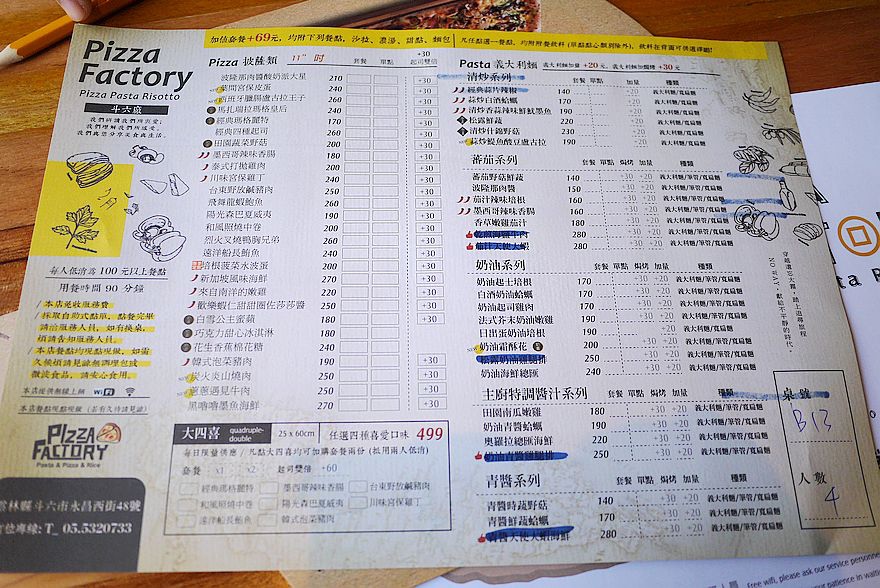 Pizza
Factory
Pizza Pasta Risotto
斗六廠
每人低消為 100 元以上餐點
用餐時間 90 分鐘
本店免收服務費
採取自助式點單，點餐完畢
請洽服務人員，如有換桌，
煩請告知服務人員。
本店餐點均現點現做，如需
久候煩請見諒
微波食品，請安心食用。
本店提供無線上網 WiFi
PIZZA
FACTORY
Pasta & Pizza & Rice
雲林縣斗六市永昌西街48號
T_ 05.5320733
加值套餐+69元，均附下列餐點，沙拉、濃湯、甜點、麵包
Pizza 披薩類 11"吋
套餐 單點 +30 起司雙倍
波隆那肉醬酸奶派大星 210 +30
240 +30
西班牙臘腸盧古拉王子 260 +30
馬扎瑞拉瑪格皇后 240 +30
經典瑪格麗特 170 +30
經典四種起司 200 +30
田園蔬菜野菇 200 +30
墨西哥辣味香腸 180 +30
泰式打拋雞肉 240 +30
川味宮保雞丁 240 +30
台東野放鹹豬肉 250 +30
飛舞龍蝦鮑魚 240 +30
陽光森巴夏威夷 190 +30
和風照燒中卷 200 +30
烈火叉燒鴨胸兄弟 260 +30
遠洋船長鮪魚 240 +30
培根菠菜水波蛋 200 +30
新加坡風味海鮮 270 +30
來自南洋的嫩雞 220 +30
歡樂蝦仁甜甜圈佐莎莎醬 250 +30
白雪公主蜜蘋 180 +30
巧克力甜心冰淇淋 180
花生香蕉棉花糖 240
韓式泡菜豬肉 190 +30
炭火炎山燒肉 250 +30
蔥蔥遇見牛肉 250 +30
黑嚕嚕墨魚海鮮 270 +30
大四喜 quadruple-double 25 x 60cm 任選四種喜愛口味 499
每日限量供應 / 凡點大四喜均可加購套餐兩份 (抵用兩人低消)
套餐 x1 x2 起司雙倍 +60
經典瑪格麗特 墨西哥辣味香腸 台東野放鹹豬肉
和風照燒中卷 陽光森巴夏威夷 川味宮保雞丁
遠洋船長鮪魚 韓式泡菜豬肉
Pasta 義大利麵 義大利麵加量 +20 元、義大利麵加焗烤 +30 元
清炒系列
套餐 單點 加量 種類
經典蒜片辣椒 140 +20 義大利麵/筆管/寬扁麵
蒜炒白酒蛤蠣 170 +20 義大利麵/筆管/寬扁麵
清炒香蒜辣味鮮魷墨魚 190 +20 義大利麵/筆管/寬扁麵
松露鮮蔬 220 +20 義大利麵/筆管/寬扁麵
清炒什錦野菇 230 +20 義大利麵/筆管/寬扁麵
蒜炒鯷魚酸豆盧古拉 190 +20 義大利麵/筆管/寬扁麵
蕃茄系列
套餐 單點 焗烤 加量 種類
蕃茄野菇鮮蔬 140 +30 +20 義大利麵/筆管/寬扁麵
波隆那肉醬 150 +30 +20 義大利麵/筆管/寬扁麵
茄汁辣味培根 160 +30 +20 義大利麵/筆管/寬扁麵
墨西哥辣味香腸 160 +30 +20 義大利麵/筆管/寬扁麵
香草嫩雞茄汁 180 +30 +20 義大利麵/筆管/寬扁麵
280 +30 +20 義大利麵/筆管/寬扁麵
茄汁天使大蝦 280 +30 +20 義大利麵/筆管/寬扁麵
奶油系列
套餐 單點 焗烤 加量 種類
奶油起士培根 170 +30 +20 義大利麵/筆管/寬扁麵
白酒奶油蛤蠣 170 +30 +20 義大利麵/筆管/寬扁麵
奶油起司雞肉 170 +30 +20 義大利麵/筆管/寬扁麵
法式芥末奶油嫩雞 190 +30 +20 義大利麵/筆管/寬扁麵
日出蛋奶油培根 190 +20 義大利麵/筆管/寬扁麵
奶油霜酥花 200 +30 +20 義大利麵/筆管/寬扁麵
松露奶油雞腿排 250 +30 +20 義大利麵/筆管/寬扁麵
奶油海鮮總匯 240 +30 +20 義大利麵/筆管/寬扁麵
主廚特調醬汁系列
套餐 單點 焗烤 加量 種類
田園南瓜嫩雞 180 +30 +20 義大利麵/筆管/寬扁麵
奶油青醬蛤蠣 190 +30 +20 義大利麵/筆管/寬扁麵
奧羅拉總匯海鮮 220 +30 +20 義大利麵/筆管/寬扁麵
奶油青醬雞腿排 250 +30 +20 義大利麵/筆管/寬扁麵
青醬系列
套餐 單點 焗烤 加量 種類
青醬時蔬野菇 150 +30 +20 義大利麵/筆管/寬扁麵
青醬鮮蔬蛤蠣 170 +30 +20 義大利麵/筆管/寬扁麵
青醬天使大蝦海鮮 280 +30 +20 義大利麵/筆管/寬扁麵
NO WAY，獻給不平靜的時代
桌號
B13
人數
4